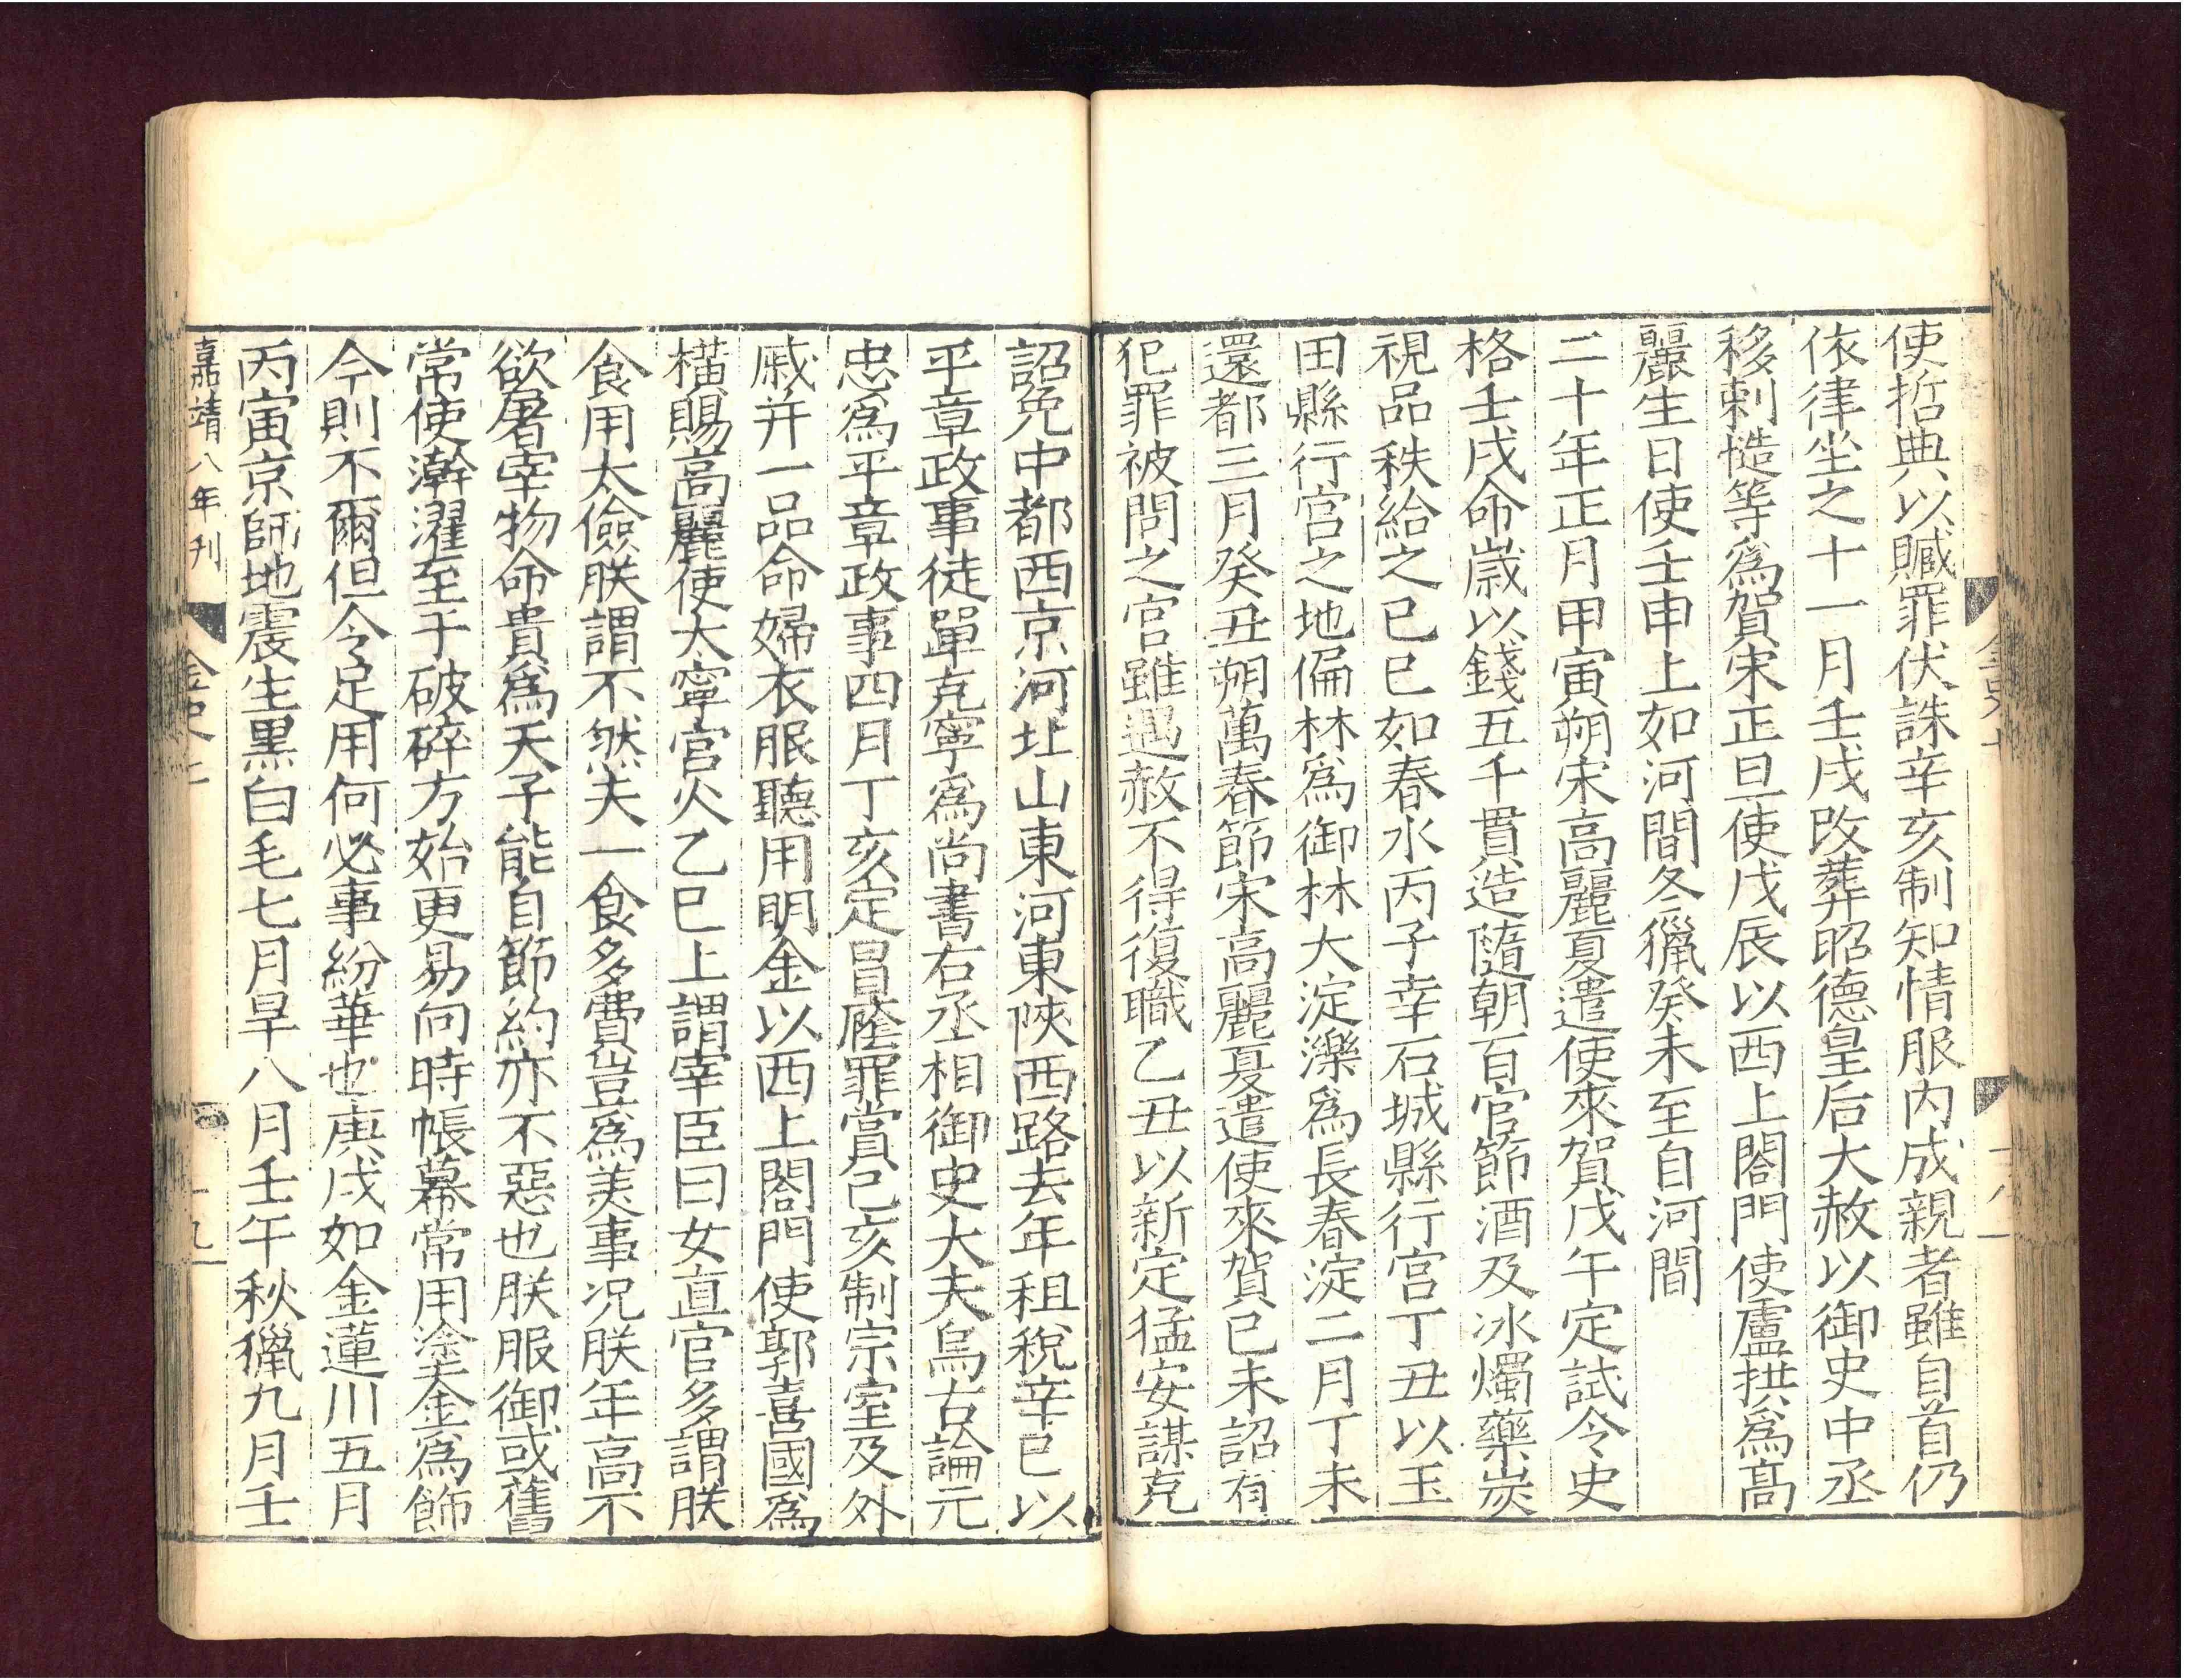 使哲典以贓罪伏誅辛亥制知情服内成親者雖自首仍
依律坐之十一月壬戌改葬昭德皇后大赦以御史中丞
移剌慥等爲賀宋正旦使戊辰以西上閤門使盧拱爲高
麗生日使壬申上如河間冬獵癸未至自河間
二十年正月甲寅朔宋高麗夏遣使來賀戊午定試令史
格壬戌命歲以錢五千貫造隨朝百官節酒及冰燭藥炭
視品秩給之己巳如春水丙子幸石城縣行宮丁丑以玉
田縣行宮之地偏林爲御林大淀濼爲長春淀二月丁未
還都三月癸丑朔萬春節宋高麗夏遣使來賀己未詔有
犯罪被問之官雖遇赦不得復職乙丑以新定猛安謀克
詔免中都西京河北山東河東陝西路去年租稅辛巳以
平章政事徒單克寧爲尚書右丞相御史大夫烏古論元
忠爲平章政事四月丁亥定冒廕罪賞己亥制宗室及外
戚并一品命婦衣服聽用明金以西上閤門使郭喜國爲
橫賜高麗使太寧宮火乙巳上謂宰臣曰女直官多謂朕
食用太儉朕謂不然夫一食多費豈爲美事况朕年高不
欲屠宰物命貴爲天子能自節約亦不惡也朕服御或舊
常使澣濯至于破碎方始更易向時帳幕常用塗金爲飾
今則不爾但令足用何必事紛華也庚戌如金蓮川五月
丙寅京師地震生黑白毛七月旱八月壬午秋獵九月壬
嘉靖八年刊
金史
十九